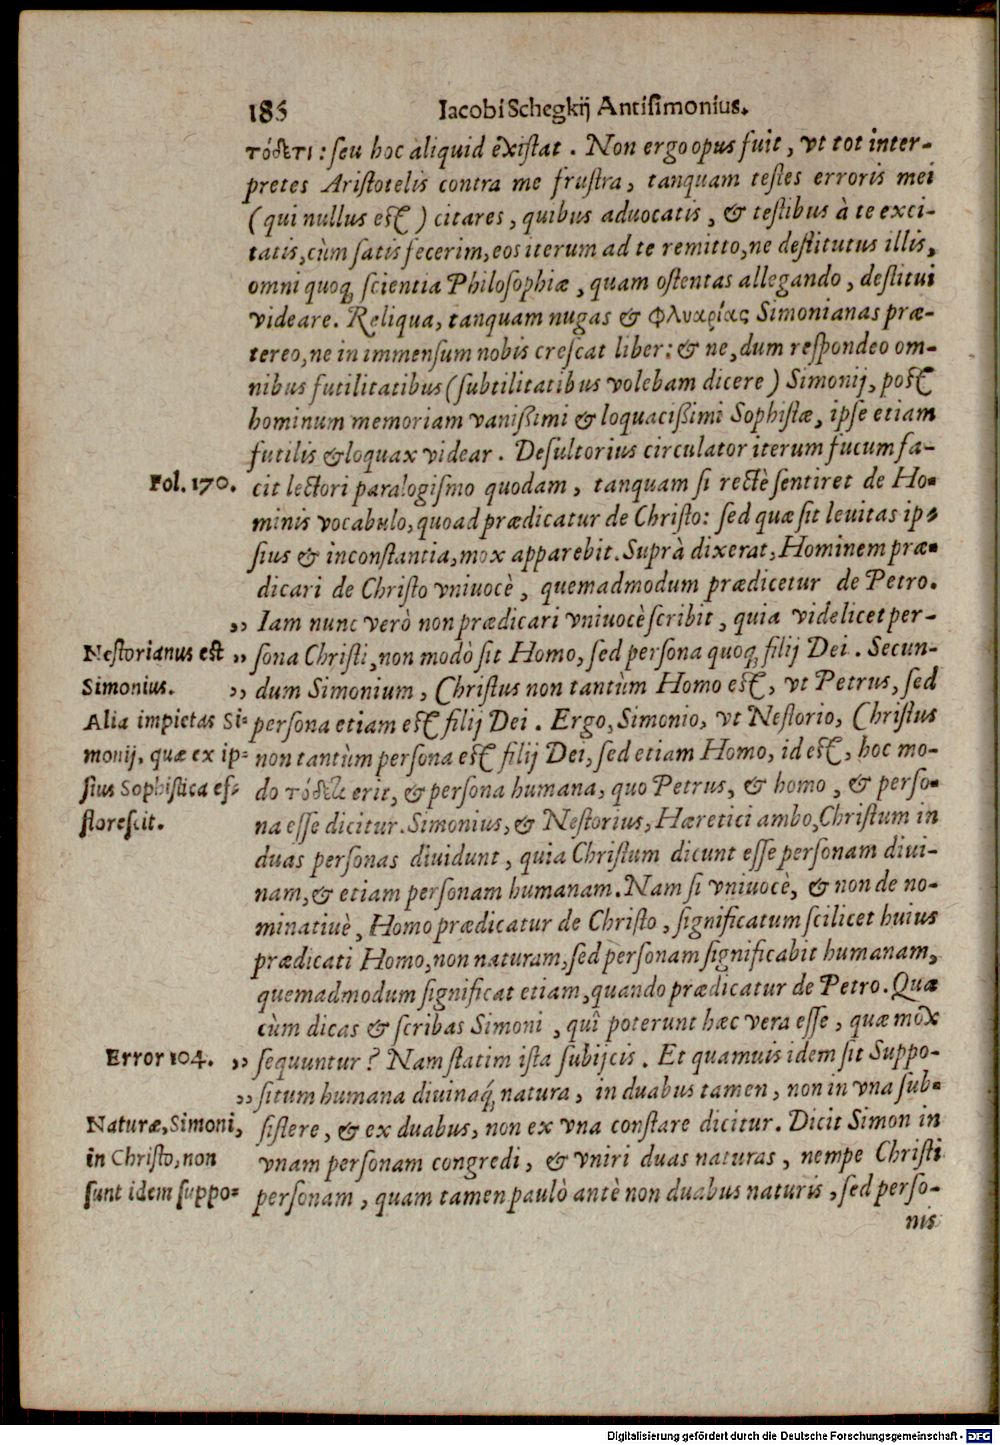 186 Iacobi Schegkij Antisimonius.
τόδετι: seu hoc aliquid existat. Non ergo opus fuit, vt tot inter-
pretes Aristotelis contra me frustra, tanquam testes erroris mei
(qui nullus est) citares, quibus aduocatis, & testibus à te exci-
tatis, cùm satis fecerim, eos iterum ad te remitto, ne destitutus illis,
omni quoq; scientia Philosophiæ, quam ostentas allegando, destitui
videare. Reliqua, tanquam nugas & φλυαρίας Simonianas præ-
tereo, ne in immensum nobis crescat liber: & ne, dum respondeo om-
nibus futilitatibus (subtilitatibus volebam dicere) Simonij, post
hominum memoriam vanißimi & loquacißimi Sophistæ, ipse etiam
futilis & loquax videar. Desultorius circulator iterum fucum fa-
Fol. 170. cit lectori paralogismo quodam, tanquam si rectè sentiret de Ho-
minis vocabulo, quoad prædicatur de Christo: sed quæ sit leuitas ip-
sius & inconstantia, mox apparebit. Suprà dixerat, Hominem præ-
dicari de Christo vniuocè, quemadmodum prædicetur de Petro.
,, Iam nunc verò non prædicari vniuocè scribit, quia videlicet per-
Nestorianus est ,, sona Christi, non modò sit Homo, sed persona quoq; filij Dei. Secun-
Simonius. ,, dum Simonium, Christus non tantùm Homo est, vt Petrus, sed
Alia impietas Si- persona etiam est filij Dei. Ergo, Simonio, vt Nestorio, Christus
monij, quæ ex ip- non tantùm persona est filij Dei, sed etiam Homo, id est, hoc mo-
sius Sophistica ef- do τόδε erit, & persona humana, quo Petrus, & homo, & perso-
florescit. na esse dicitur. Simonius, & Nestorius, Hæretici ambo, Christum in
duas personas diuidunt, quia Christum dicunt esse personam diui-
nam, & etiam personam humanam. Nam si vniuocè, & non de no-
minatiuè, Homo prædicatur de Christo, significatum scilicet huius
prædicati Homo, non naturam, sed personam significabit humanam,
quemadmodum significat etiam, quando prædicatur de Petro. Quæ
cùm dicas & scribas Simoni, quî poterunt hæc vera esse, quæ mox
Error 104. ,, sequuntur? Nam statim ista subijcis. Et quamuis idem sit Suppo-
,, situm humana diuinaq́; natura, in duabus tamen, non in vna sub-
Naturæ, Simoni, sistere, & ex duabus, non ex vna constare dicitur. Dicit Simon in
in Christo, non vnam personam congredi, & vniri duas naturas, nempe Christi
sunt idem suppo- personam, quam tamen paulò antè non duabus naturis, sed perso-
nis
Digitalisierung gefördert durch die Deutsche Forschungsgemeinschaft - DFG